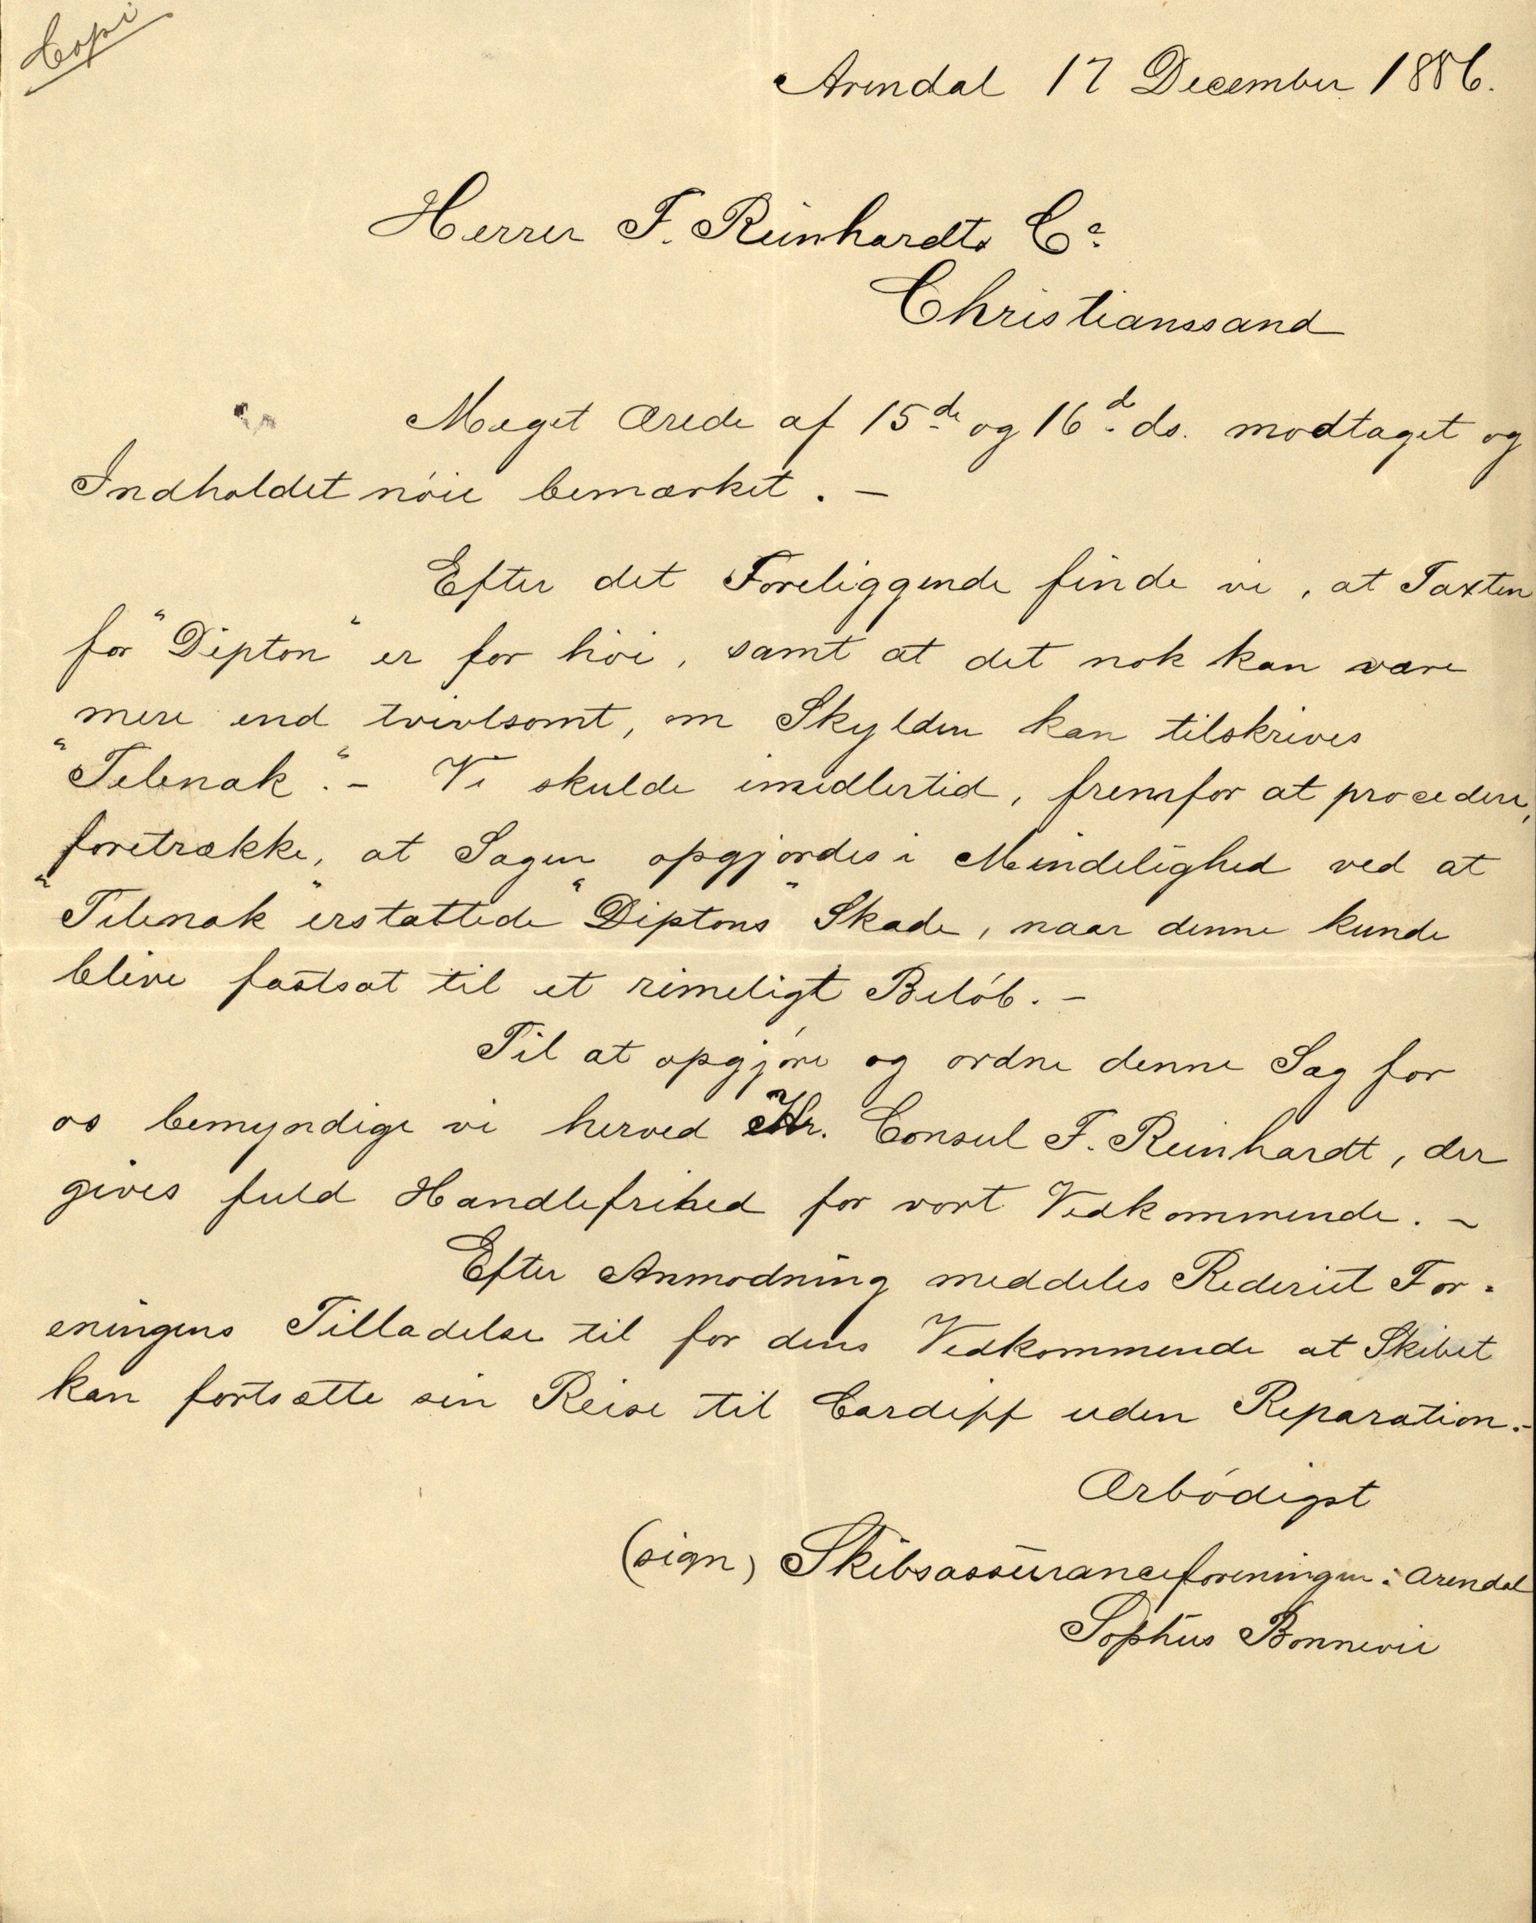 Copi
Arendal 17 December 1886.
Herrer F. Reinhardt & Co
Christianssand
Meget ærede af 15de og 16d ds. modtaget og
Indholdet nóie bemærket. —
Efter det Foreliggende finde vi, at Taxten
for "Dipton" er for höi, samt at det nok kan være
mere end tvivlsomt, om Skylden kan tilskrives
"Telenak". — Vi skulde imidlertid, fremfor at procedere,
foretrække, at Sagen opgjordes i Mindelighed ved at
"Telenak" erstattede "Diptons" Skade, naar denne kunde
blive fastsat til et rimeligt Belób. —
Til at opgjóre og ordne denne Sag for
os bemyndige vi herved Hr. Consul F. Reinhardt, der
gives fuld Handlefrihed for vort Vedkommende. —
Efter Anmodning meddeles Rederiet For-
eningens Tilladelse til for dens Vedkommende at Skibet
kan fortsætte sin Reise til Cardiff uden Reparation. —
Ærbódigst
(sign) Skibsassuranceforeningen i Arendal
Sophus Bonnevie